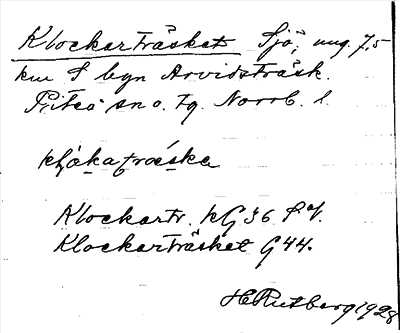 Klockarträsket Sjö, ung. 7,5
km S byn Arvidsträsk.
Piteå sn o. tg. Norrb. l.
Klockartr. kG 36 S of.
Klockarträsket G44.
H Rutberg 1928